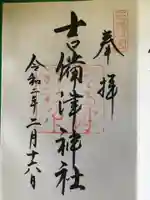 奉拝
吉備津神社
令和二年二月十六日